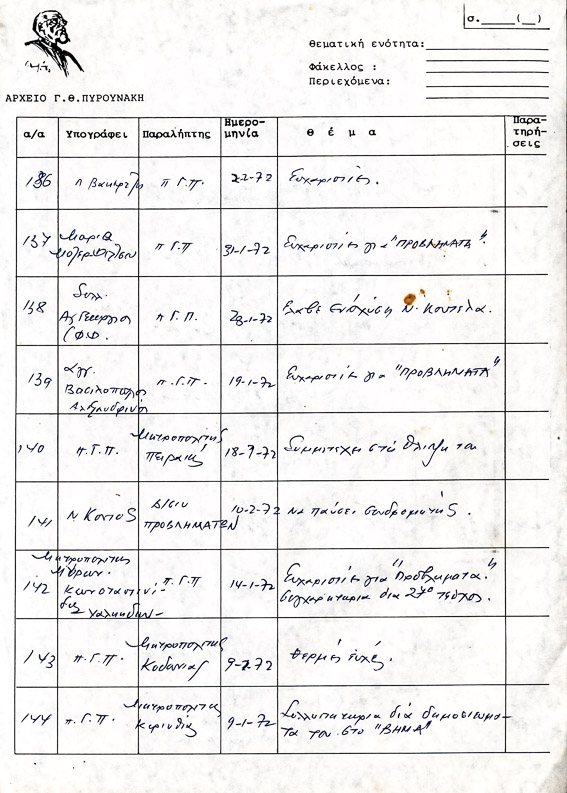 σ.____(__)
Θεματική ενότητα:
Φάκελλος :
Περιεχόμενα:
ΑΡΧΕΙΟ Γ.Θ.ΠΥΡΟΥΝΑΚΗ
α/α Υπογράφει Παραλήπτης Ημερο-
μηνία Θ έ μ α Παρα-
τηρή-
σεις
136 π Γ.Π. 22-72 Ευχαριστίες.
137 Μαρία
π Γ.Π 31-1-72 Ευχαριστίες για "ΠΡΟΒΛΗΜΑΤΑ".
138 Συλλ.
Αγ Γεωργίου π Γ. Π. 23-1-72 Έλαβε ενίσχυση Ν. Κουτελα.
139 Αγγ.
Βασιλοπούλου π.Γ.Π. 19-1-72 Ευχαριστίες για "ΠΡΟΒΛΗΜΑΤΑ"
140 π.Γ.Π. Μητροπολίτης
Πειραιώς 18-7-72 Συμμετέχει στη θλίψη του
141 Ν Δ/σιν
ΠΡΟΒΛΗΜΑΤΩΝ 10-2-72 να παύσει συνδρομητής.
142 Μητροπολίτης
Κωνσταντίνος
Χαλκηδων- π.Γ.Π 14-1-72 Ευχαριστίες για "Προβλήματα."
Συγχαρητήρια δια 27ο τεύχος.
143 π.Γ.Π. Μητροπολίτης
Κυδωνίας 9-2-72 Θερμές ευχές.
144 π.Γ.Π. Μητροπολίτης
Κορινθίας 9-1-72 Συλλυπητήρια διά δημοσίευμα-
τα του στο "ΒΗΜΑ"